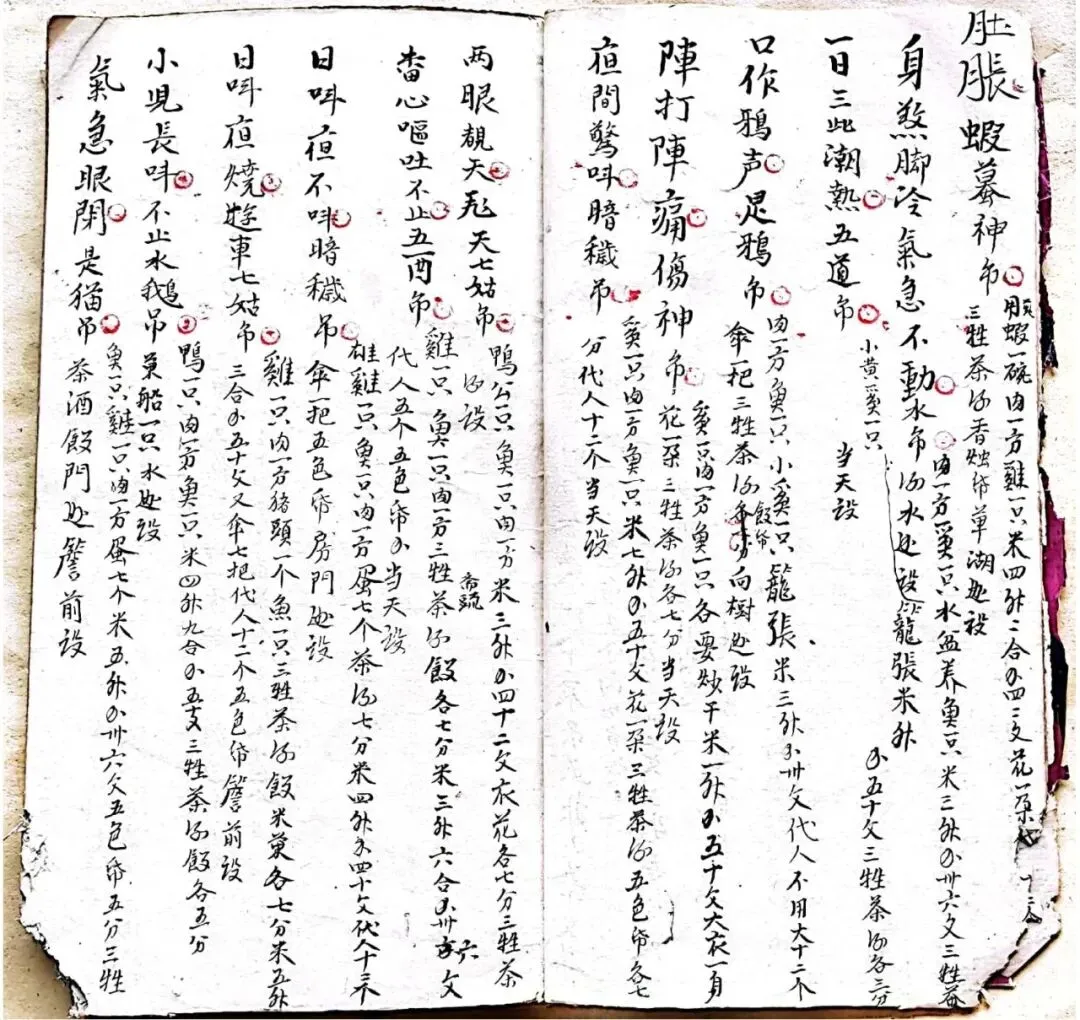 肚脹蝦蟇神吊
用蝦一碗肉一方雞一只米四升二合小四二文花一朶
三牲茶酒香烛帋草湖处設
身煞脚冷氣急不動水吊
肉一方雞一只水盆养魚一只米三升小卅六文三牲茶
酒水处設
一日三此潮熱五道吊
小黄雞一只
当天設
籠張米升
小五十文三牲茶酒各三分
口作鴉声是鴉吊
肉一方魚一只小雞一只籠張米三升小卅文代人不用大十二个
傘一把三牲茶酒飯帋向樹处設
陣打陣痛傷神吊
雞一只肉一方魚一只各要炒干米一升小五十文大衣一身
花一朶三牲茶酒各七分当天設
夜間驚呌暗穢吊
雞一只肉一方魚一只米七升小五十文花一朶三牲茶酒五色帋各七
分代人十二个当天設
两眼覩天飛天七姑吊
鴨公一只魚一只肉一方米三升小四十二文衣花各七分三牲茶
酒設
畨心嘔吐不止五酉吊
雞一只魚一只肉一方三牲茶酒飯各七分米三升六合小卅六文
代人五个五色帋小当天設
日呌夜不呌暗穢吊
雄雞一只魚一只肉一方蛋七个茶酒七分米四升小四十文代人十三个
傘一把五色帋房門处設
日呌夜燒遊車七姑吊
雞一只肉一方猪頭一个魚一只三牲茶酒飯米菓各七分米五升
三合小五十文又傘七把代人十二个五色帋簷前設
小児長呌不止水鵝吊
鴨一只肉一方魚一只米四升九合小五文三牲茶酒飯各五分
菓船一只水处設
氣急眼閉是猫吊
魚一只雞一只肉一方蛋七个米五升小卅六文五色帋五分三牲
茶酒飯門处簷前設